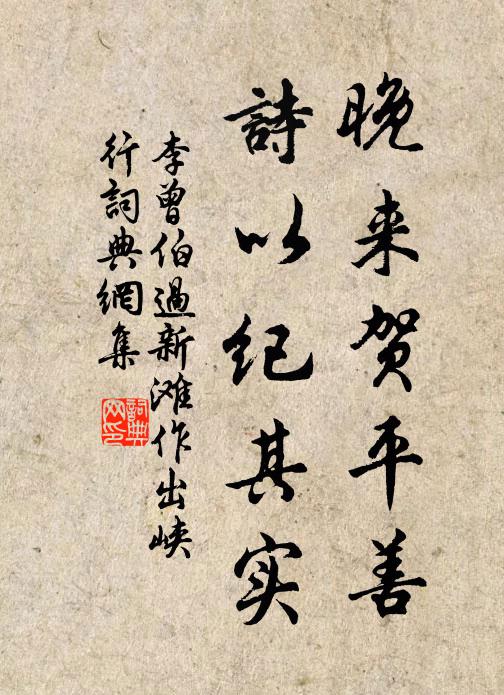 晚来贺平善
詩以纪其实
李曾伯過新滩作出峡
行詞典網集
詞典
网印